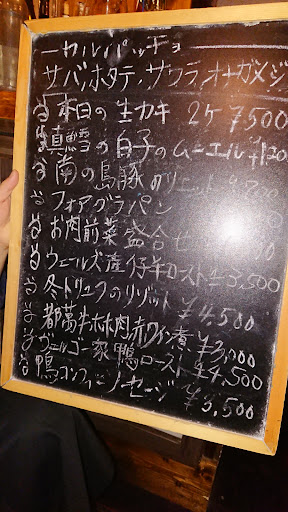 カルパッチョ
サバ、ホタテ、サワラ、オナガメジ
本日の生カキ 2ケ 7500
真鱈の白子のムニエル
南の島豚のリエット
フォアグラパン
お肉前菜盛合せ
ウェールズ産仔羊ロースト 3,500
冬トリュフのリゾット ¥4,500
都萬牛ホホ肉赤ワイン煮 ¥3,000
ヴェルゴー家鴨ロースト ¥4,500
鴨コンフィとソーセージ ¥3,500